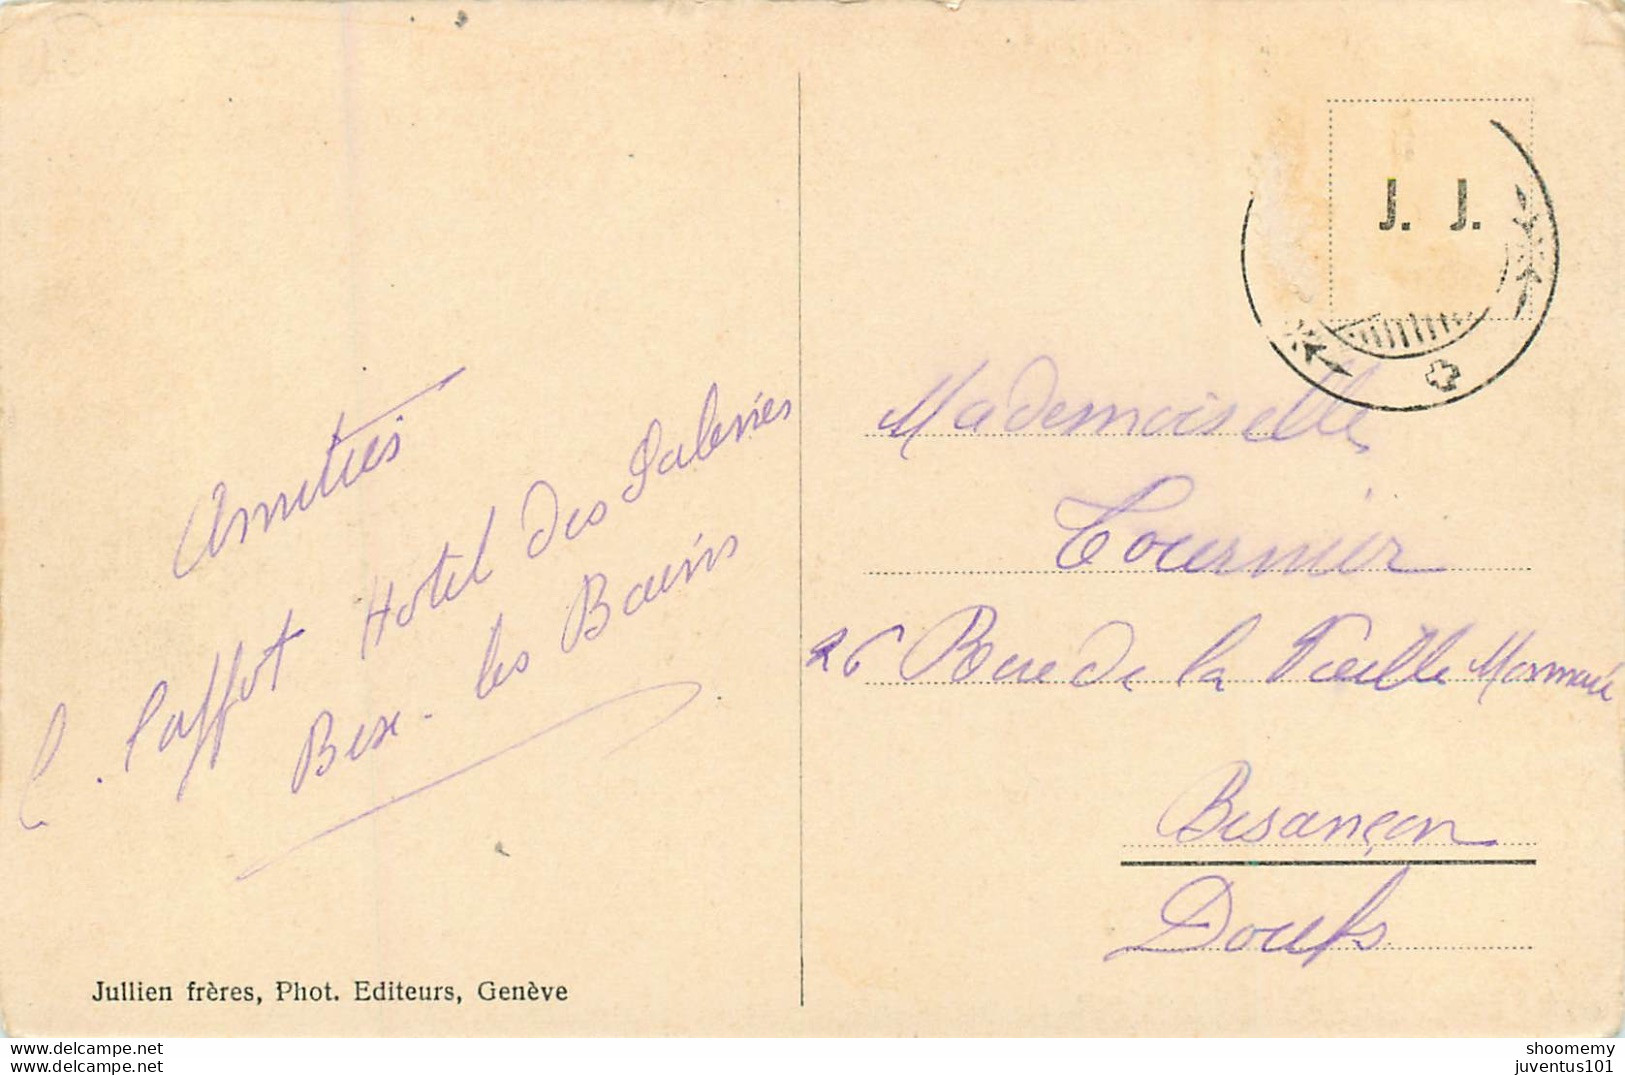 Amitiés
C. Paffot Hotel des Salines
Bex-les Bains
Jullien frères, Phot. Editeurs, Genève
J. J.
Mademoiselle
Tournier
26 Rue de la Vieille Monnaie
Besançon
Doubs
www.delcampe.net
shoomemy
juventus101